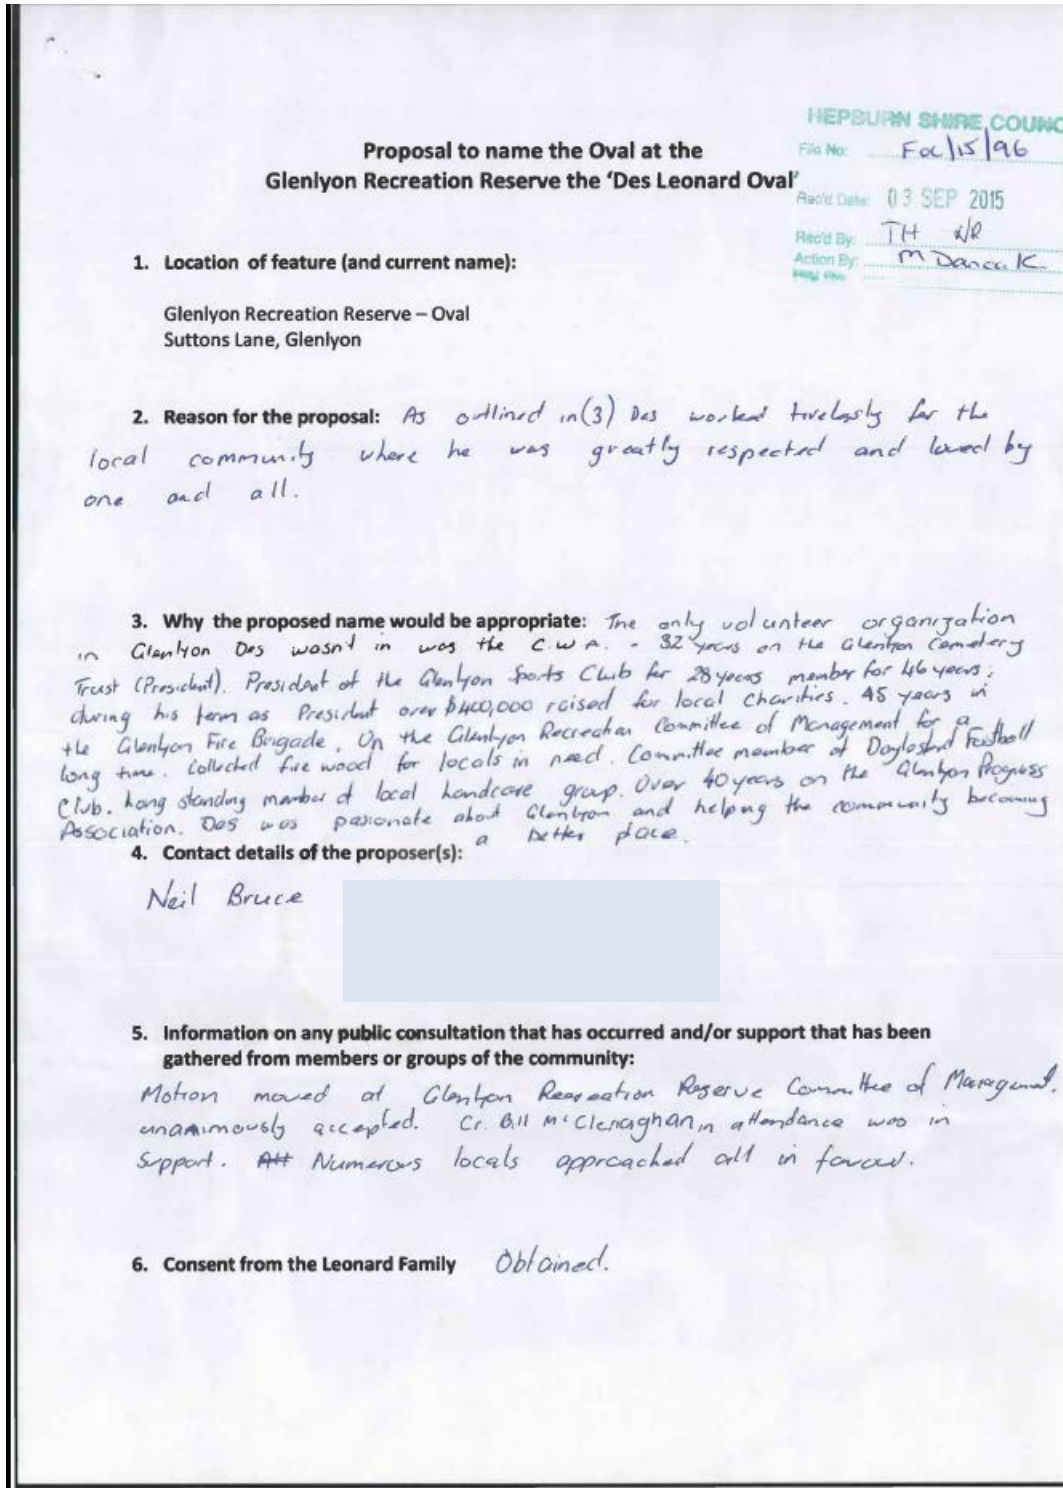 HEPBURN SHIRE COUNC
File No: Fol/15/96
Rec'd Date: 03 SEP 2015
Rec'd By: TH
Action By: M Dancak
Proposal to name the Oval at the
Glenlyon Recreation Reserve the 'Des Leonard Oval'
1. Location of feature (and current name):
Glenlyon Recreation Reserve – Oval
Suttons Lane, Glenlyon
2. Reason for the proposal: As outlined in (3) Des worked tirelessly for the
local community where he was greatly respected and loved by
one and all.
3. Why the proposed name would be appropriate: The only volunteer organization
in Glenlyon Des wasn't in was the C.W.A. - 32 years on the Glenlyon Cemetery
Trust (President). President of the Glenlyon Sports Club for 28 years member for 46 years;
during his term as President over $400,000 raised for local charities. 45 years in
the Glenlyon Fire Brigade. On the Glenlyon Recreation Committee of Management for a
long time. Collected fire wood for locals in need. Committee member of Daylesford Football
Club. Long standing member of local landcare group. Over 40 years on the Glenlyon Progress
Association. Des was pasionate about Glenlyon and helping the community becoming
a better place.
4. Contact details of the proposer(s):
Neil Bruce
5. Information on any public consultation that has occurred and/or support that has been
gathered from members or groups of the community:
Motion moved at Glenlyon Recreation Reserve Committee of Management.
unanimously accepted. Cr. Bill McClenaghan in attendance was in
Support. Numerous locals approached all in favour.
6. Consent from the Leonard Family Obtained.